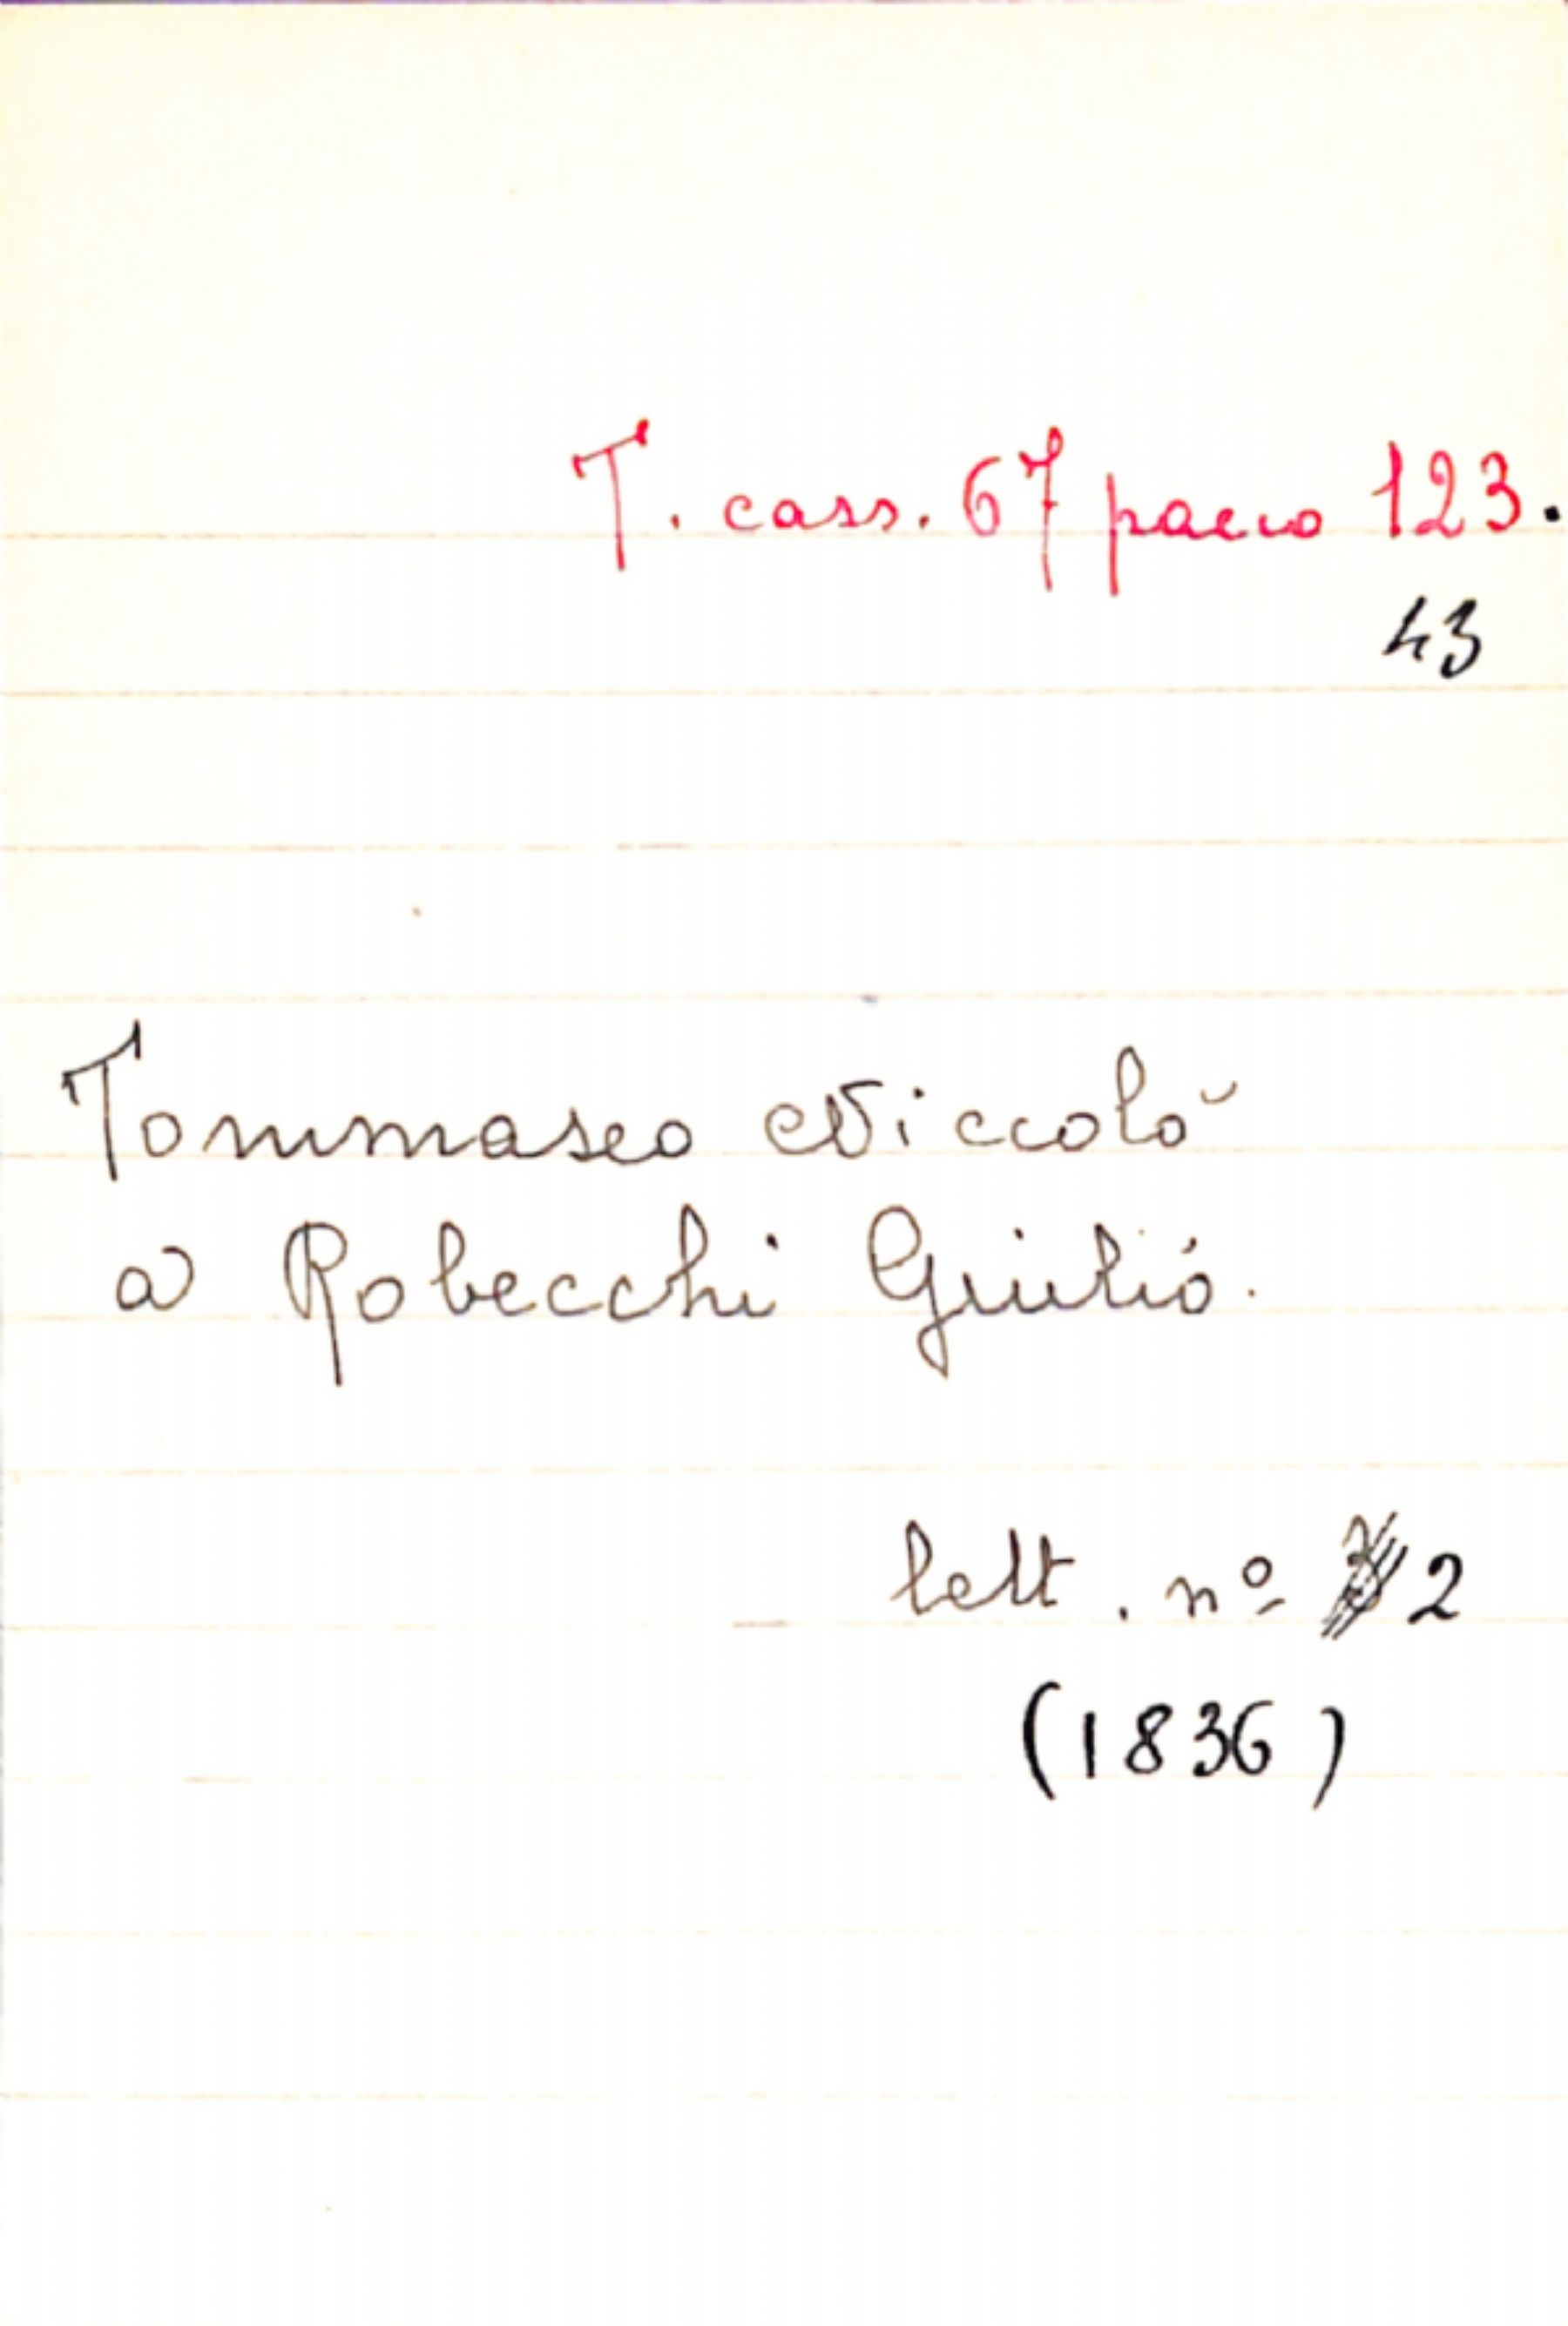 T. cass. 67 pacco 123.
43
Tommaseo Niccolò
a Robecchi Giulio.
lett. nº 2
(1836)